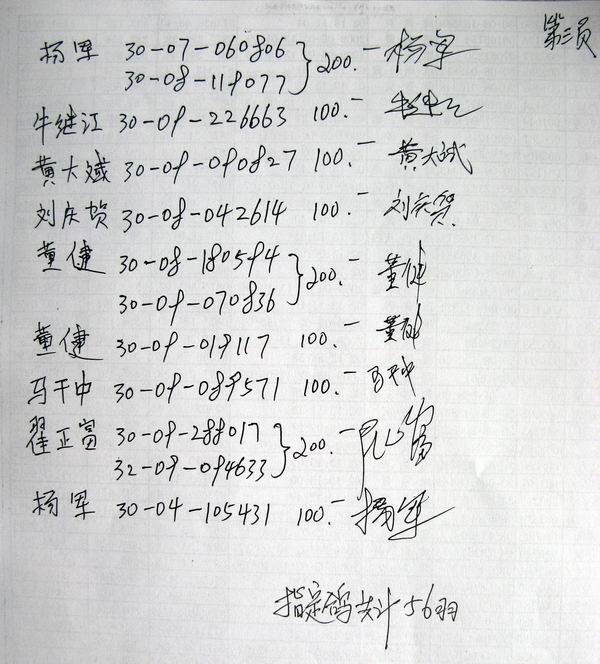 第三页
杨军 30-07-060806 200.- 杨军
30-08-119077
牛继江 30-09-226663 100.- 牛继江
黄大斌 30-09-090827 100.- 黄大斌
刘庆贺 30-08-042614 100.- 刘庆贺
董健 30-08-180594 200.- 董健
30-09-070836
董健 30-09-019117 100.- 董健
马干中 30-09-089571 100.- 马干中
翟正富 30-09-288017 200.-
32-09-094633
杨军 30-04-105431 100.- 杨军
指定鸽共计56羽